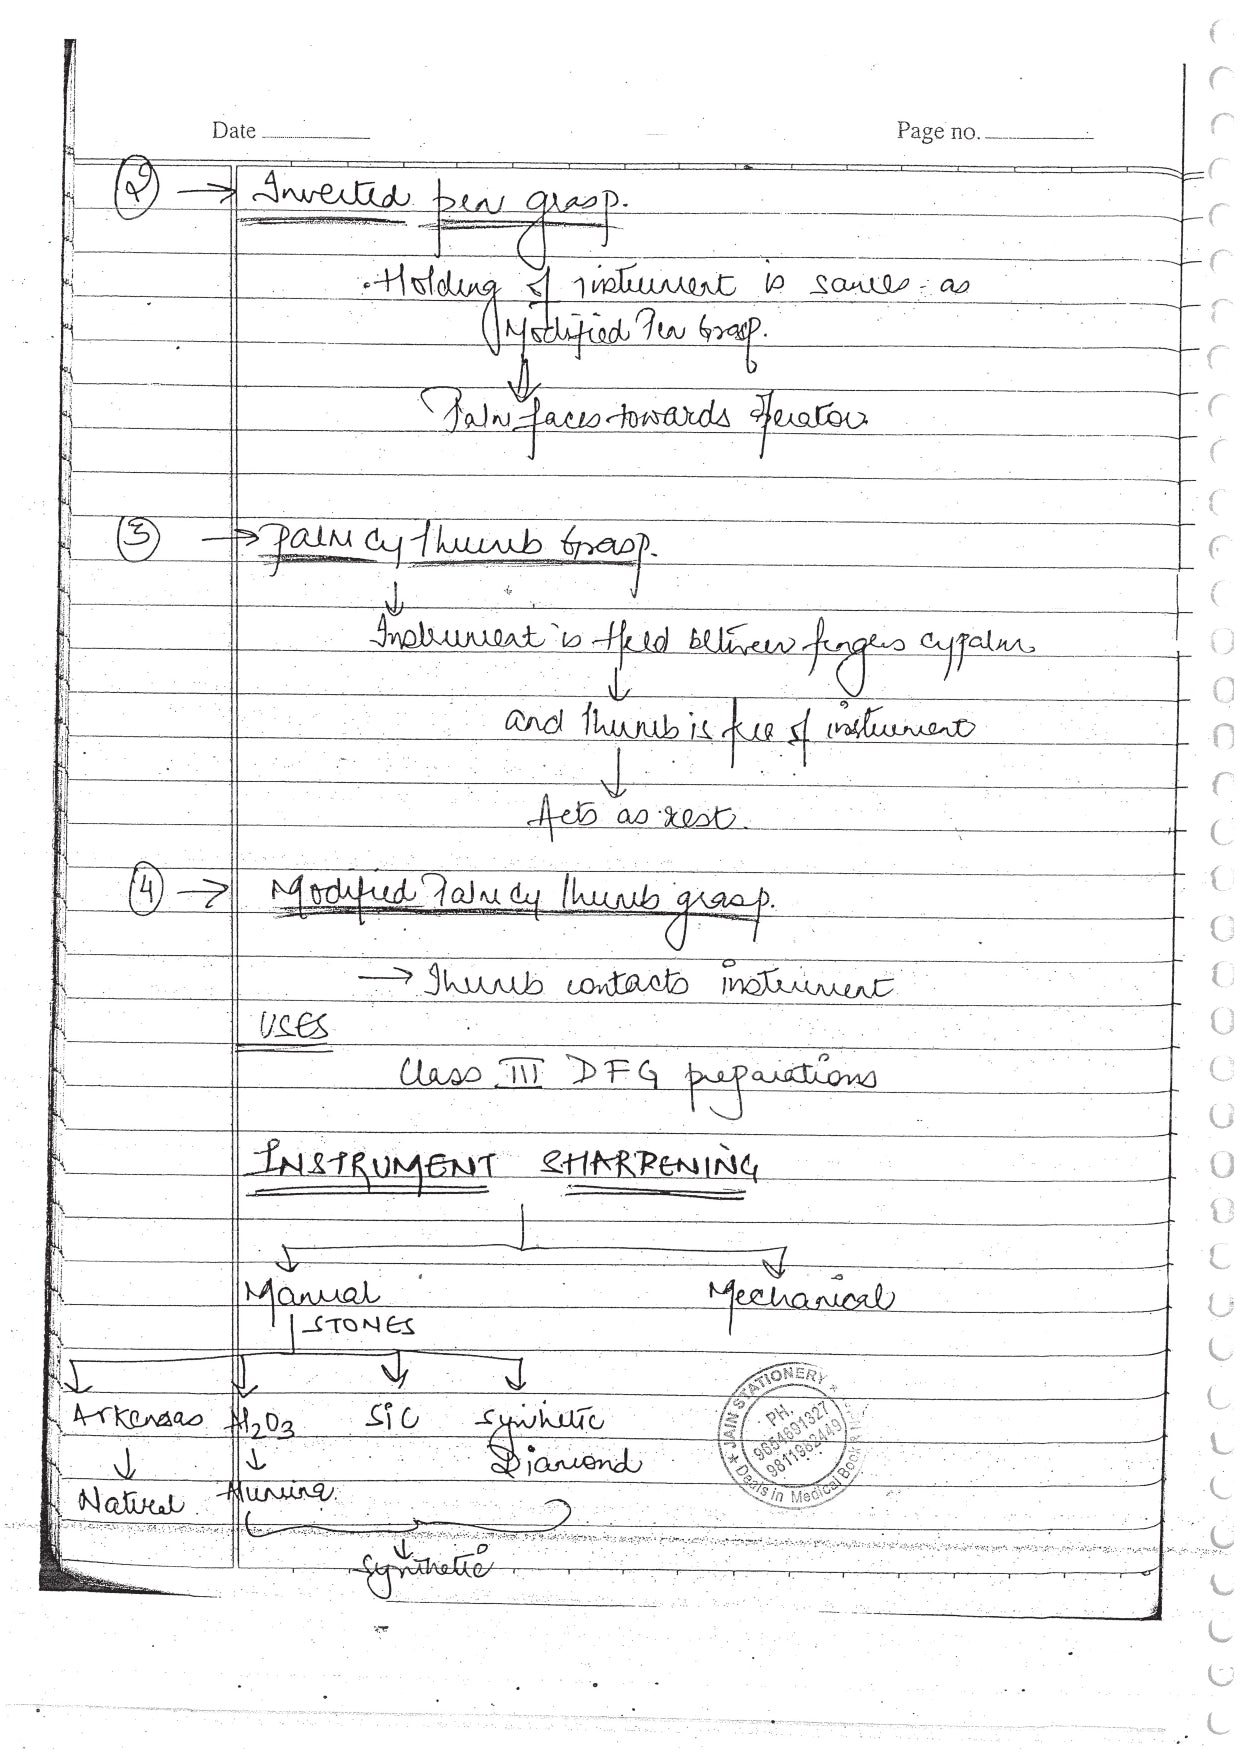 Date
Page no.
2 → Inverted pen grasp.
Holding of instrument is same as
Modified Pen Grasp.
Palm faces towards operator
3 → Palm & thumb Grasp.
Instrument is Held between fingers & palm
and thumb is free of instrument
Acts as rest.
4 → Modified Palm & thumb grasp.
→ Thumb contacts instrument
USES
Class III DFG preparations
INSTRUMENT SHARPENING
Manual Mechanical
STONES
Arkensas Al2O3 SiC Synthetic
Diamond
Natural Alumina
Synthetic
★ JAIN STATIONERY ★
PH.
9654691327
Deals in Medical Book